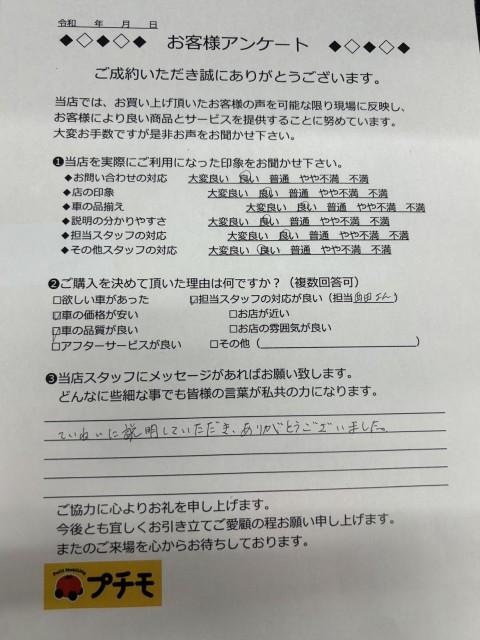 令和　　年　　月　　日
◆◇◆◇◆　お客様アンケート　◆◇◆◇◆
ご成約いただき誠にありがとうございます。
当店では、お買い上げ頂いたお客様の声を可能な限り現場に反映し、
お客様により良い商品とサービスを提供することに努めています。
大変お手数ですが是非お声をお聞かせ下さい。
❶当店を実際にご利用になった印象をお聞かせ下さい。
◆お問い合わせの対応　大変良い　良い　普通　やや不満　不満
◆店の印象　大変良い　良い　普通　やや不満　不満
◆車の品揃え　大変良い　良い　普通　やや不満　不満
◆説明の分かりやすさ　大変良い　良い　普通　やや不満　不満
◆担当スタッフの対応　大変良い　良い　普通　やや不満　不満
◆その他スタッフの対応　大変良い　良い　普通　やや不満　不満
❷ご購入を決めて頂いた理由は何ですか？（複数回答可）
□欲しい車があった　☑担当スタッフの対応が良い（担当 さん）
☑車の価格が安い　□お店が近い
☑車の品質が良い　□お店の雰囲気が良い
□アフターサービスが良い　□その他（　　　　）
❸当店スタッフにメッセージがあればお願い致します。
どんなに些細な事でも皆様の言葉が私共の力になります。
ていねいに説明していただき、ありがとうございました。
ご協力に心よりお礼を申し上げます。
今後とも宜しくお引き立てご愛顧の程お願い申し上げます。
またのご来場を心からお待ちしております。
Petit Mobility
プチモ